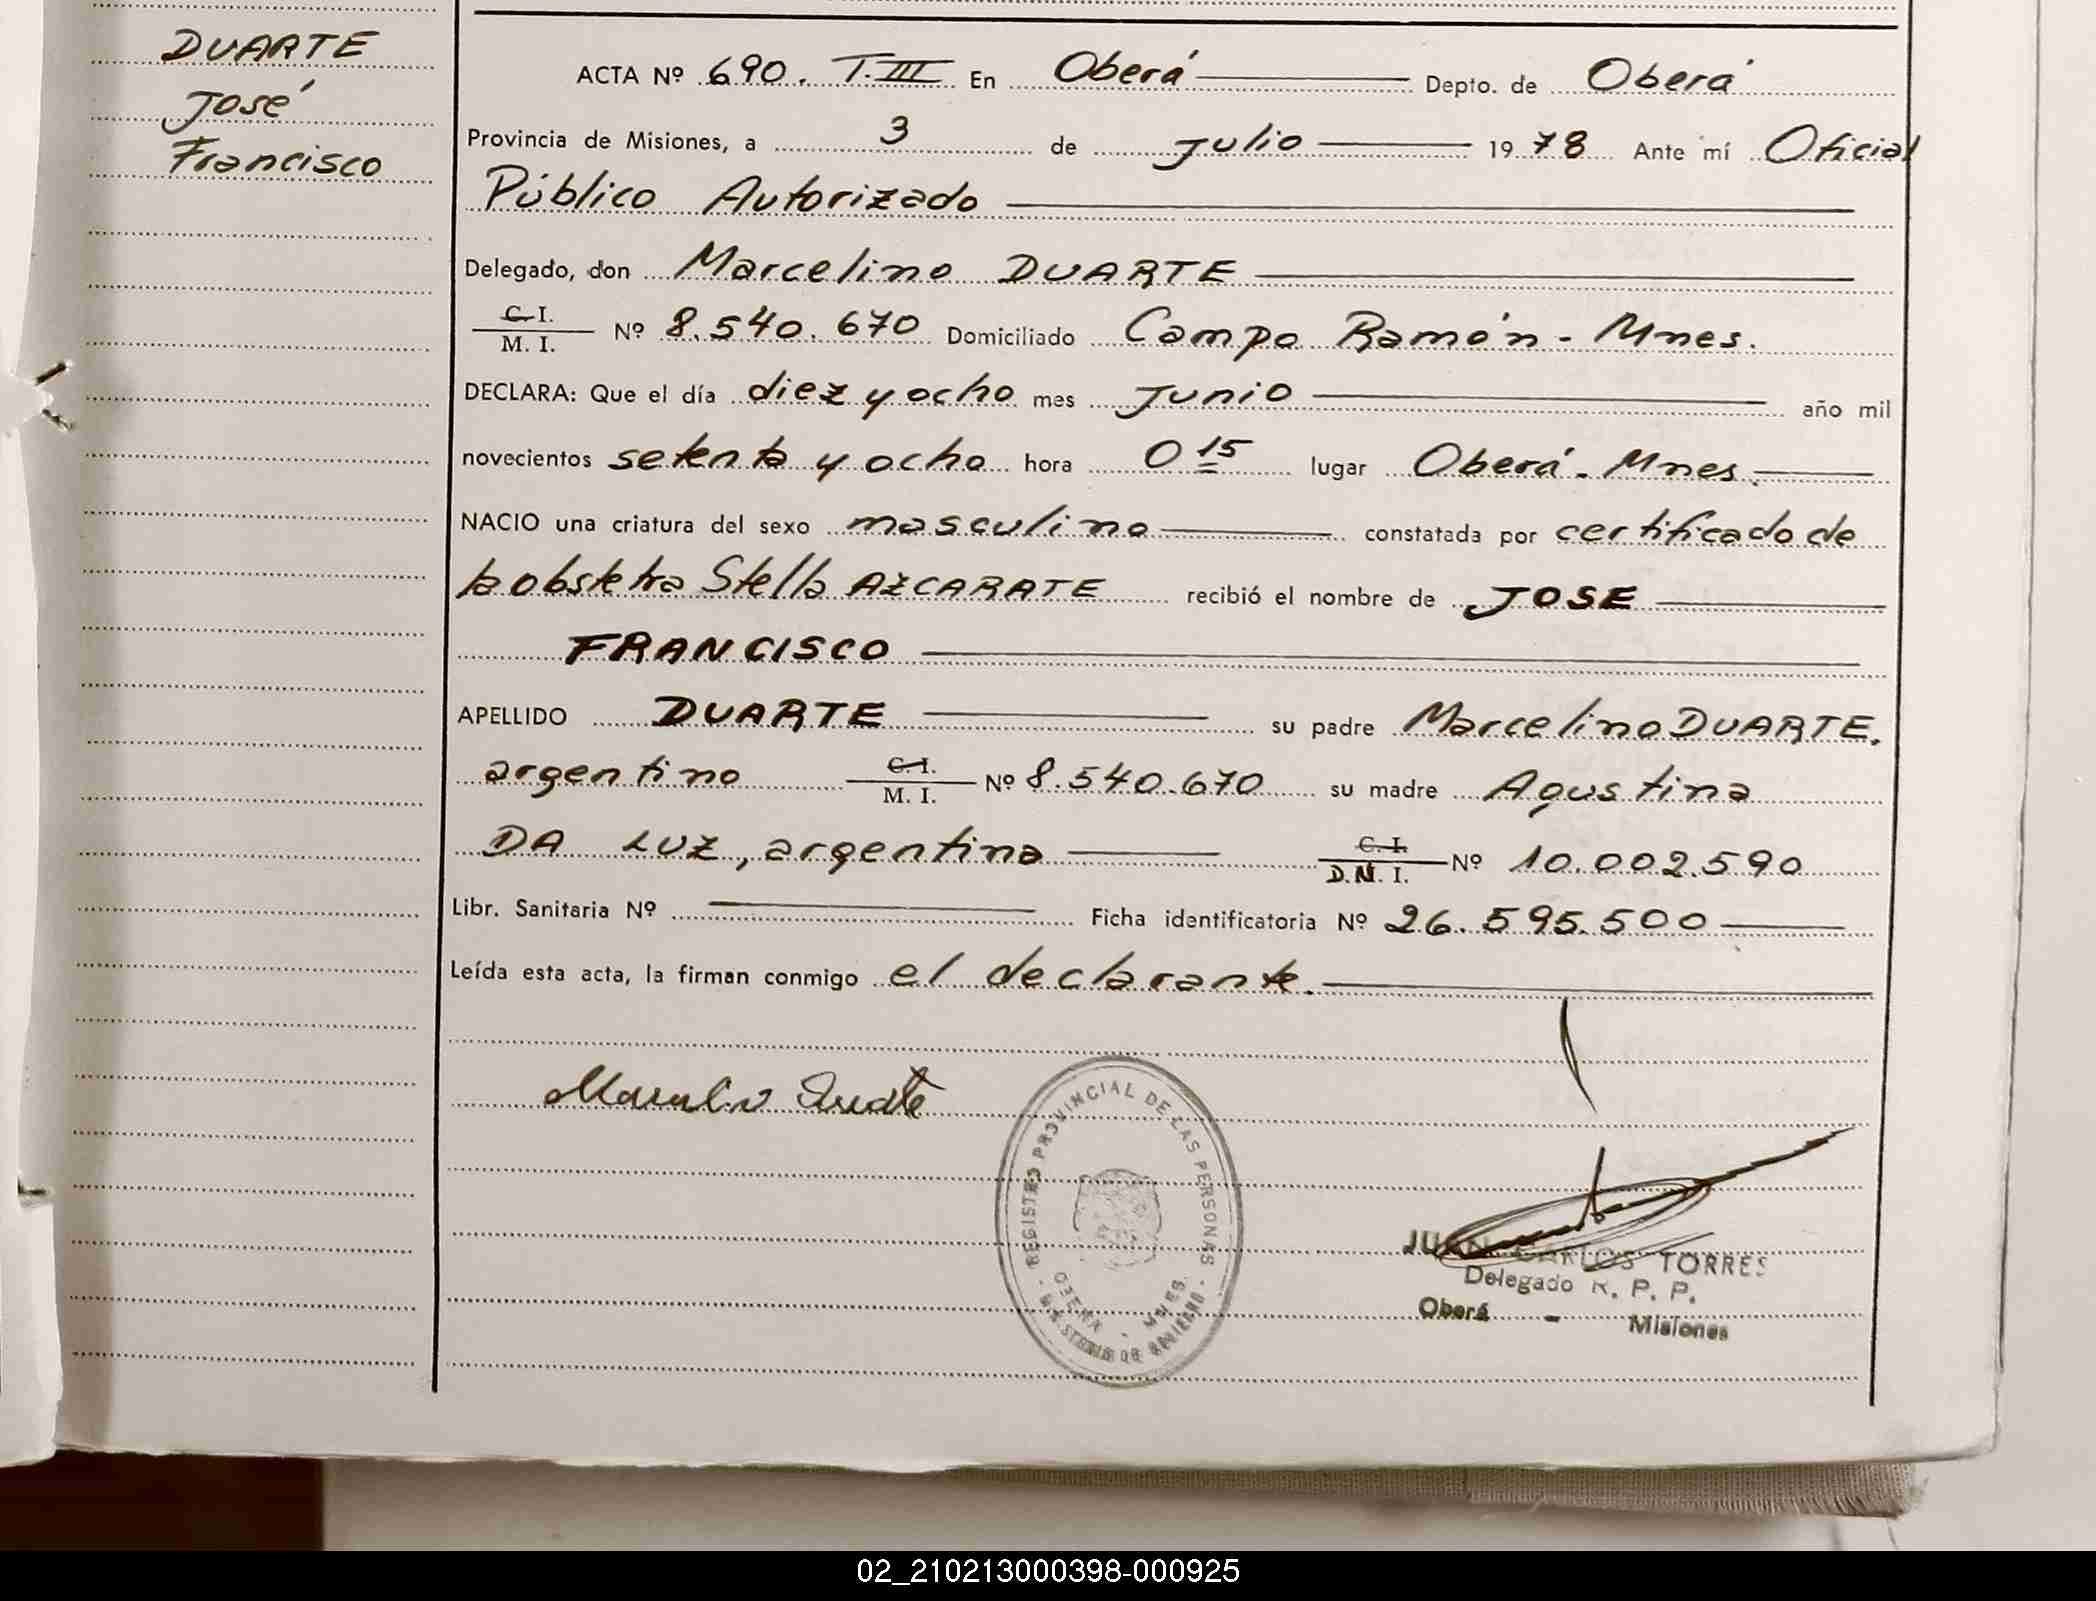 DUARTE
José
Francisco
ACTA Nº 690. T.III En Oberá Depto. de Oberá
Provincia de Misiones, a 3 de Julio 1978 Ante mí Oficial
Público Autorizado
Delegado, don Marcelino DUARTE
C. I.
M. I. Nº 8.540.670 Domiciliado Campo Ramón - Mnes.
DECLARA: Que el día diez y ocho mes Junio año mil
novecientos setenta y ocho hora 0 15 lugar Oberá - Mnes.
NACIO una criatura del sexo masculino constatada por certificado de
la obstetra Stella AZCARATE recibió el nombre de JOSE
FRANCISCO
APELLIDO DUARTE su padre Marcelino DUARTE,
argentino C. I.
M. I. Nº 8.540.670 su madre Agustina
DA LUZ, argentina C. I.
D.N. I. Nº 10.002.590
Libr. Sanitaria Nº Ficha identificatoria Nº 26.595.500
Leída esta acta, la firman conmigo el declarante.
Marcelino Duarte
REGISTRO PROVINCIAL DE LAS PERSONAS
OBERA - MNES.
MINISTERIO DE GOBIERNO
JUAN CARLOS TORRES
Delegado R. P. P.
Oberá - Misiones
02_210213000398-000925